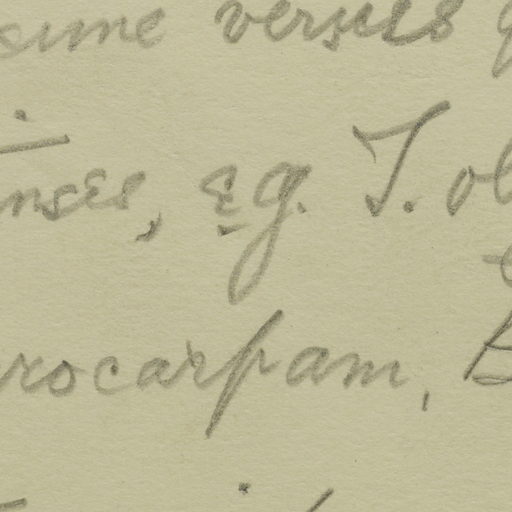 same verses
nses, e.g. T. ol
rocarpam, B